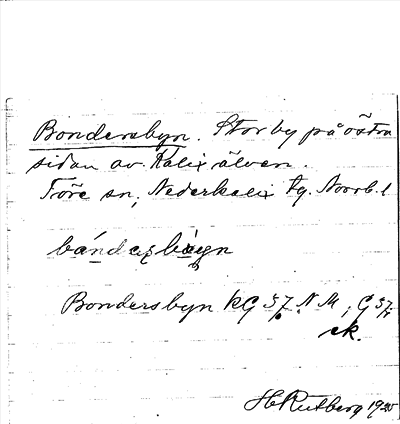 Bondersbyn. Stor by på östra
sidan av Kalix älven.
Töre sn, Nederkalix tg. Norrb. l
Bondersbyn kG 57 N.M; G 57
ek.
H Rutberg 1925